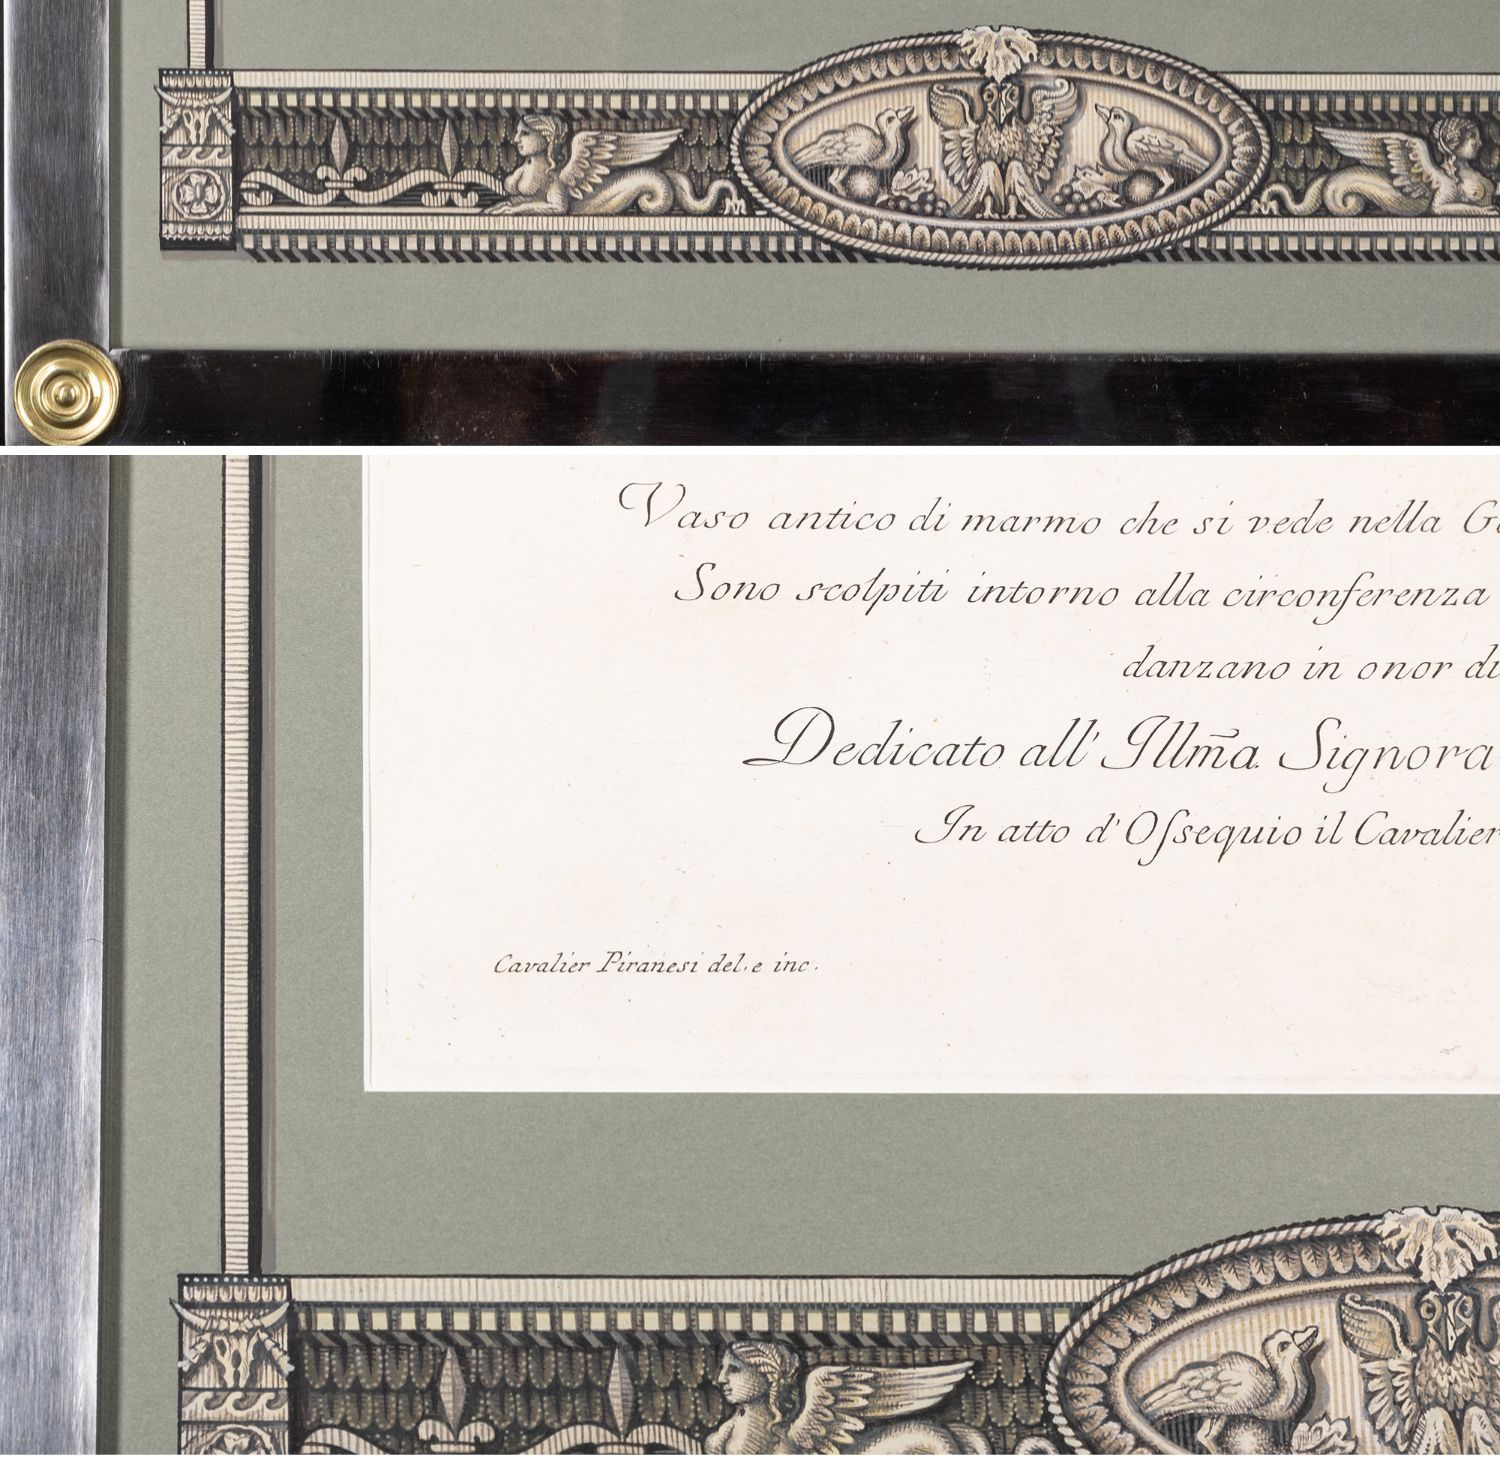 Vaso antico di marmo che si vede nella
Sono scolpiti intorno alla circonferenza
danzano in onor di
Dedicato all' Illm̃a. Signora
In atto d' Oſsequio il Cavalier
Cavalier Piranesi del. e inc.